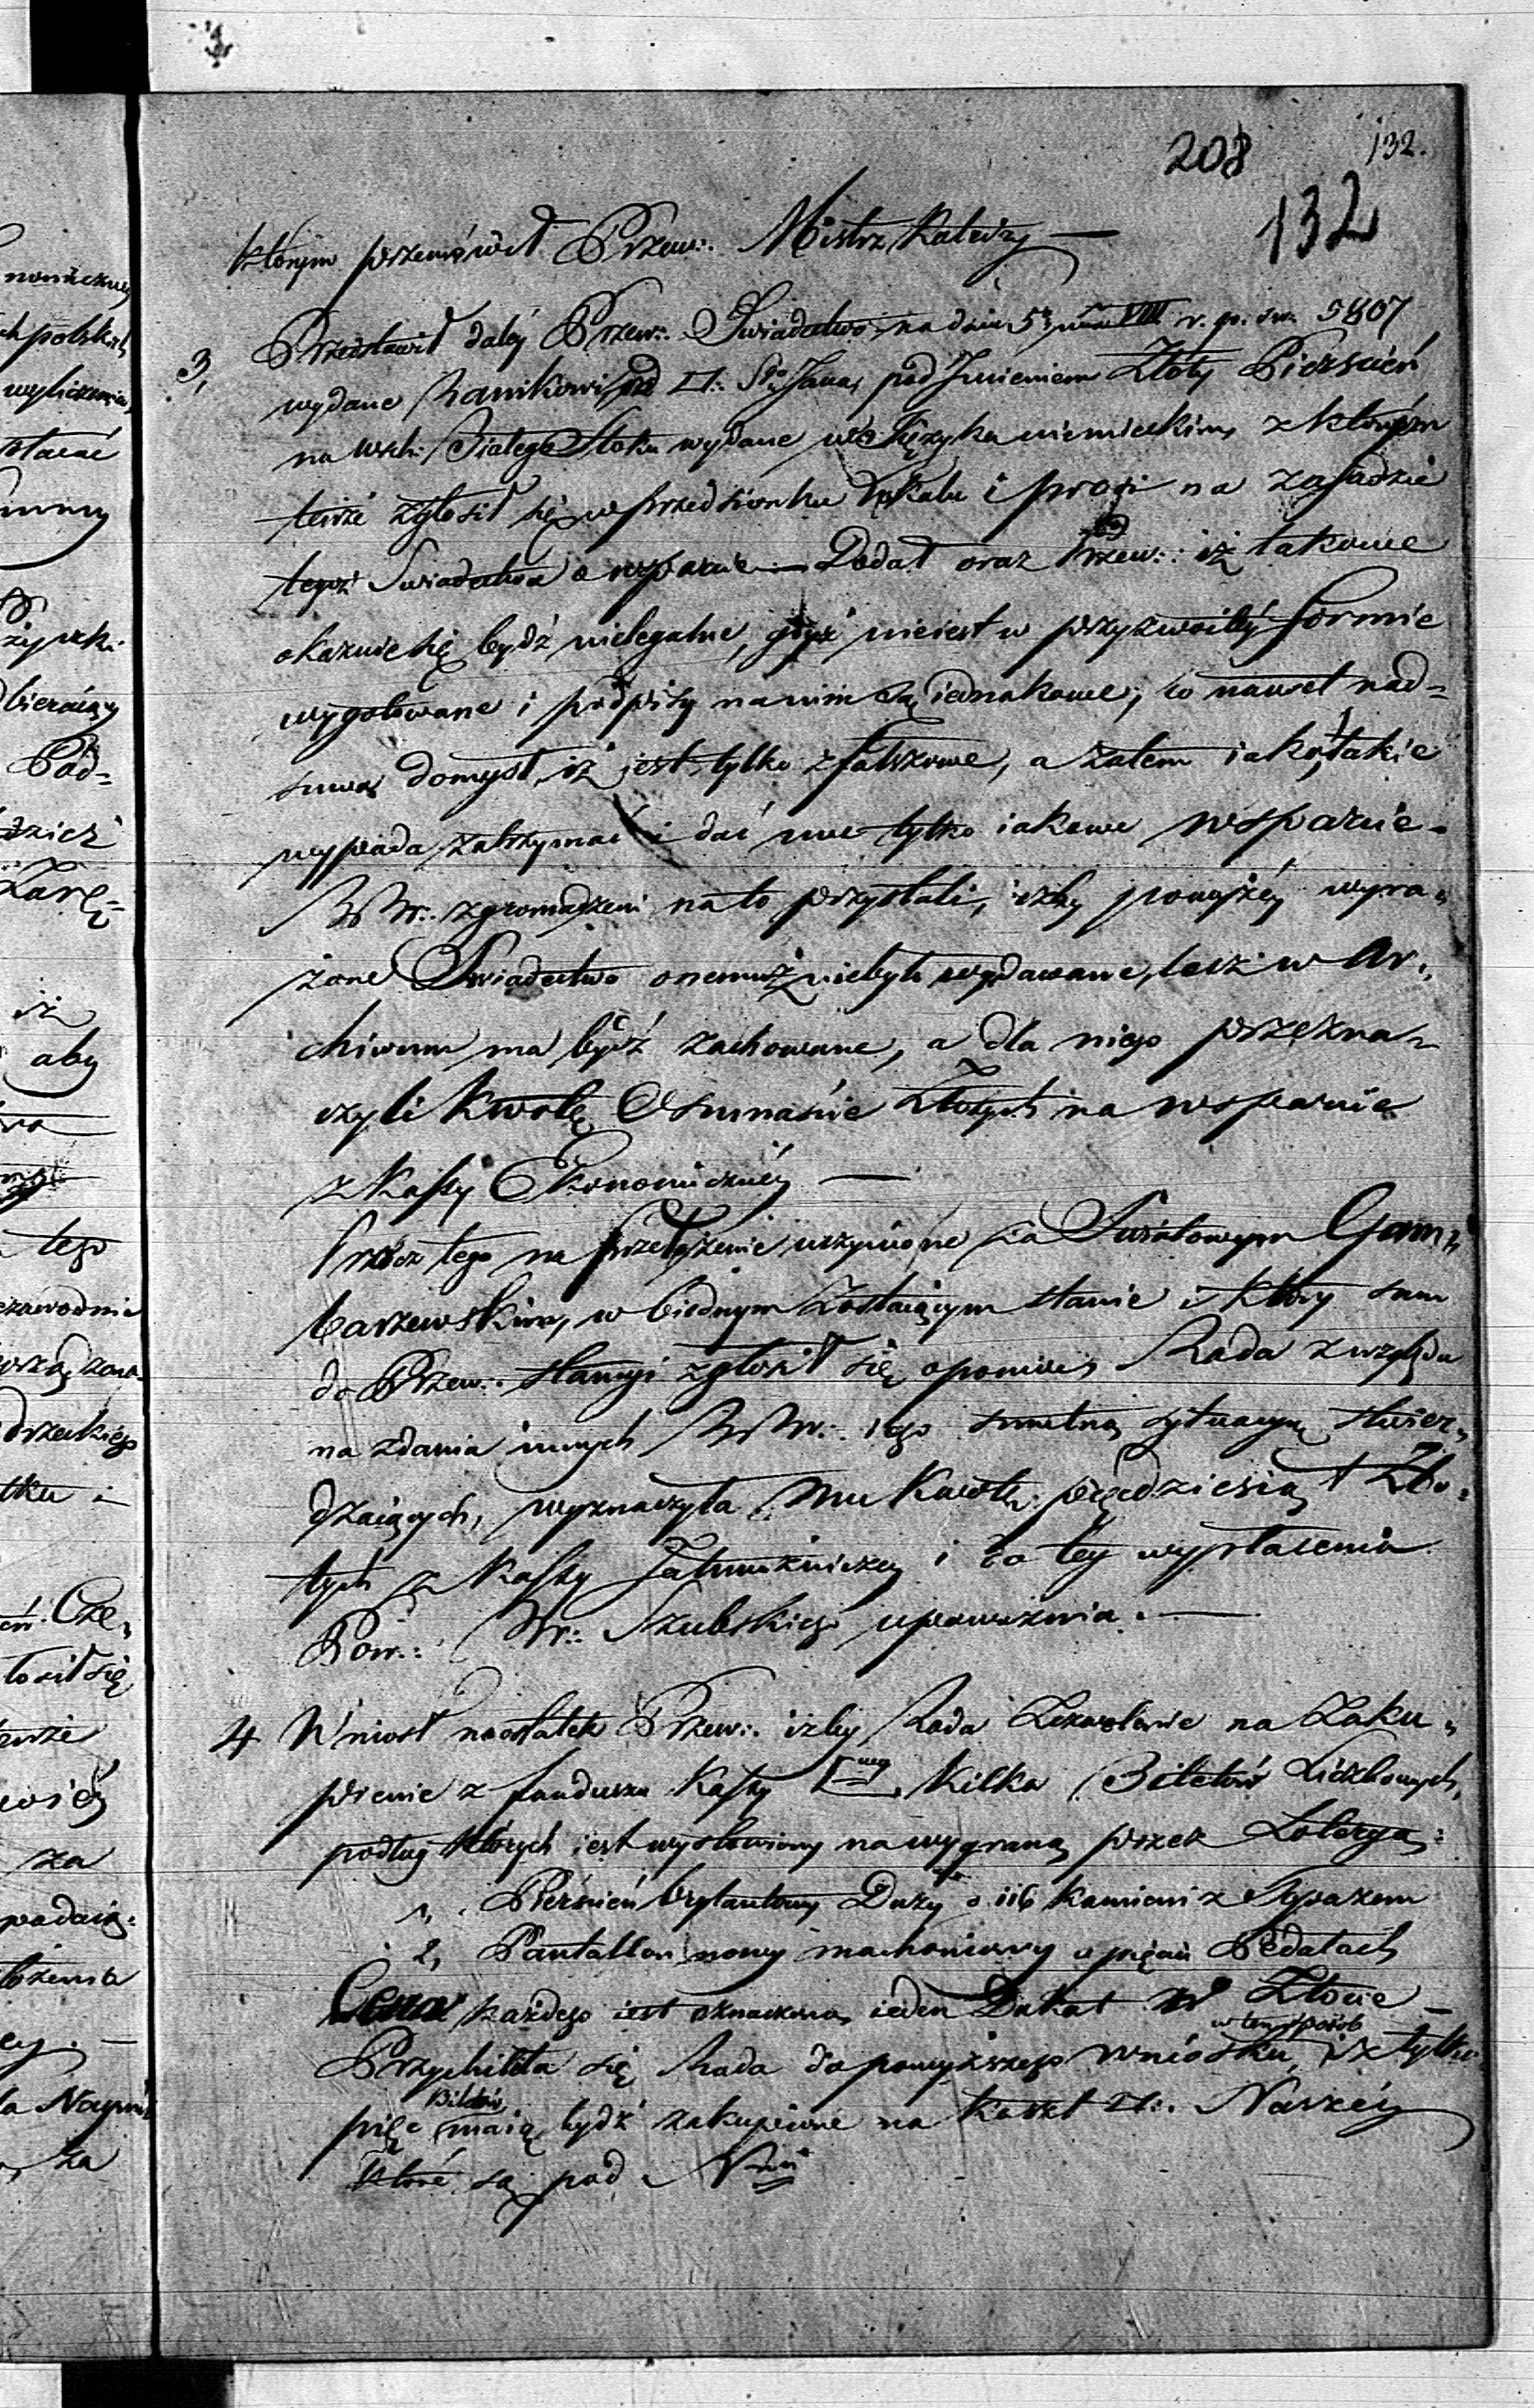 208 132.
132
którym przemówił Przew∴ Mistrz Katedry —
3, Przedstawił daléy Przew∴ Swiadectwo na dniu 5 VIII r. p. sw. 5807
wydane Kanikowi od □∴ Sgo Jana, pod Jmieniem Złoty Pierscień
na wsch∴ Białego Stoku wydane w Języku niemieckim, z którym
tenże zgłosił się w przedsionku Lokalu i prosi na zasadzie
tegoż Swiadectwa o wsparcie — Dodał oraz Przew∴ iż takowe
okazuie się bydź nielegalne, gdyż nieiest w przyzwoitéy formie
wygotowane i podpisy na nim są iednakowe, co nawet nad=
suwa domysł, iż jest tylko zfałszowe, a zatem iako takie
wypada zatrzymać i dać mu tylko iakowe wsparcie.
BBr∴ zgromadzeni na to przystali, iżby powyżéy wyra„
żone Swiadectwo onemuż niebyło wydawane, lecz w Ar„
chiwum ma bydź zachowane, a dla niego przezna=
czyli kwotę Osmnaście Złotych na wsparcie
z Kassy Ekonomicznéy —
Prócz tego na przełożenie uczynione za Swiatowym Gom„
barzewskim, w biednym zostaiącym stanie i który sam
do Przew∴ Stamqi zgłosił się o pomoc, Rada z względu
na zdania innych BBr∴ iego smutną sytuacyą stwier„
dzaiących, wyznaczyła mu Kwotę pięćdziesiąt Zło„
tych z Kassy Jałmużniczey i do tey wypłacenia
Pow∴ Br∴ Szubskiego upoważnia. —
4 Wniosł naostatek Przew∴ izby Rada zezwolenie na Zaku„
pienie z funduszu Kassy kilka Biletów Liczbowych,
podług których iest wystawiony na wygraną przez Loteryą:
1, Pierścień brylantowy Duży o 116 kamieni z Szpazem
2, Pantallon nowy machoniowy o pięciu Pedałach
Cena każdego iest oznaczona ieden Dukat w Złocie —
w ten sposób
Przychiliła się Rada do powyższego wniosku, iż tylko
Biletów
pięc maią bydź zakupione na koszt □∴ Naszéy
które są pod Nrmi